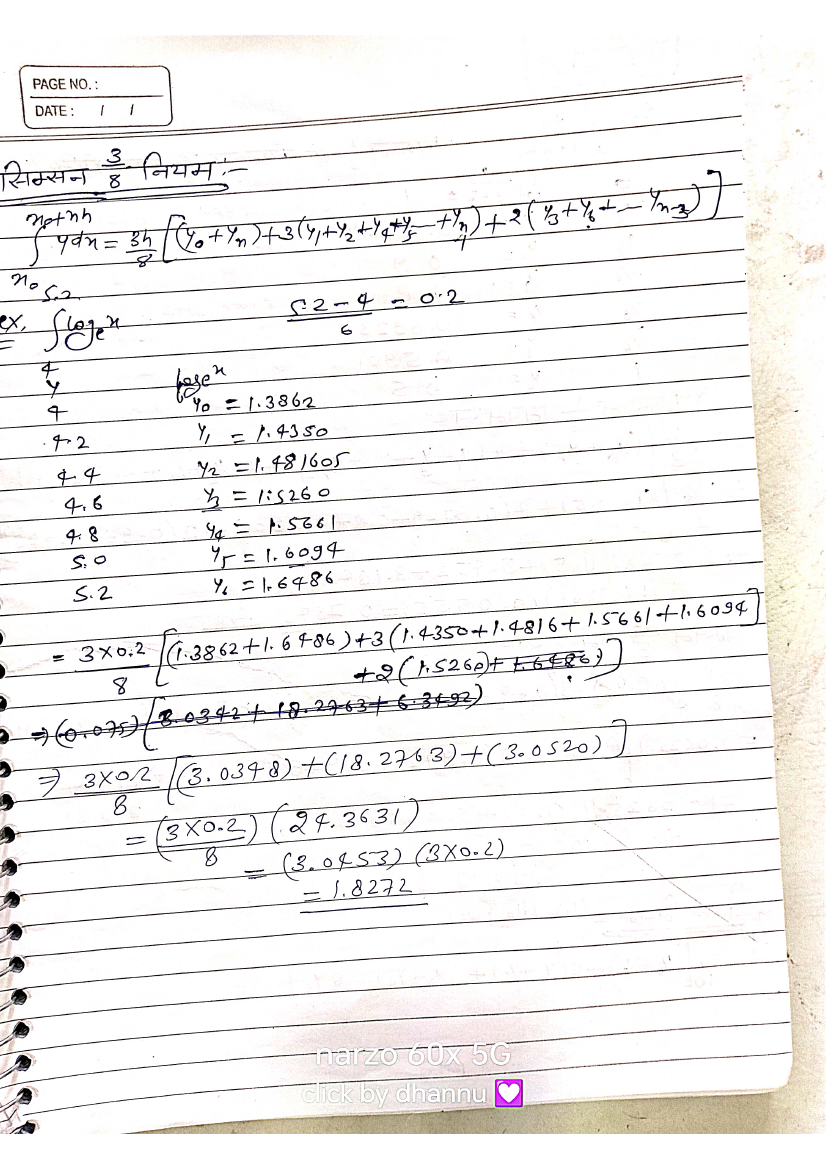 PAGE NO. :
DATE : / /
सिम्सन 3/8 नियम :-
∫ₓ₀^(x₀+nh) ydx = 3h/8 [(y₀+yₙ)+3(y₁+y₂+y₄+y₅--+yₙ₋₁)+2(y₃+y₆+--yₙ₋₃)]
ex. ∫₄^5.2 logₑx      5.2-4/6 = 0.2
y      logₑx
4      y₀ = 1.3862
4.2      y₁ = 1.4350
4.4      y₂ = 1.481605
4.6      y₃ = 1.5260
4.8      y₄ = 1.5661
5.0      y₅ = 1.6094
5.2      y₆ = 1.6486
= 3×0.2/8 [(1.3862+1.6486)+3(1.4350+1.4816+1.5661+1.6094]
+2(1.5260)+1.6486)]
⇒ (0.075)[3.0342+18.2763+6.3492)
⇒ 3×0.2/8 [(3.0348)+(18.2763)+(3.0520)]
= (3×0.2/8) (24.3631)
= (3.0453) (3×0.2)
= 1.8272
narzo 60x 5G
click by dhannu 💟